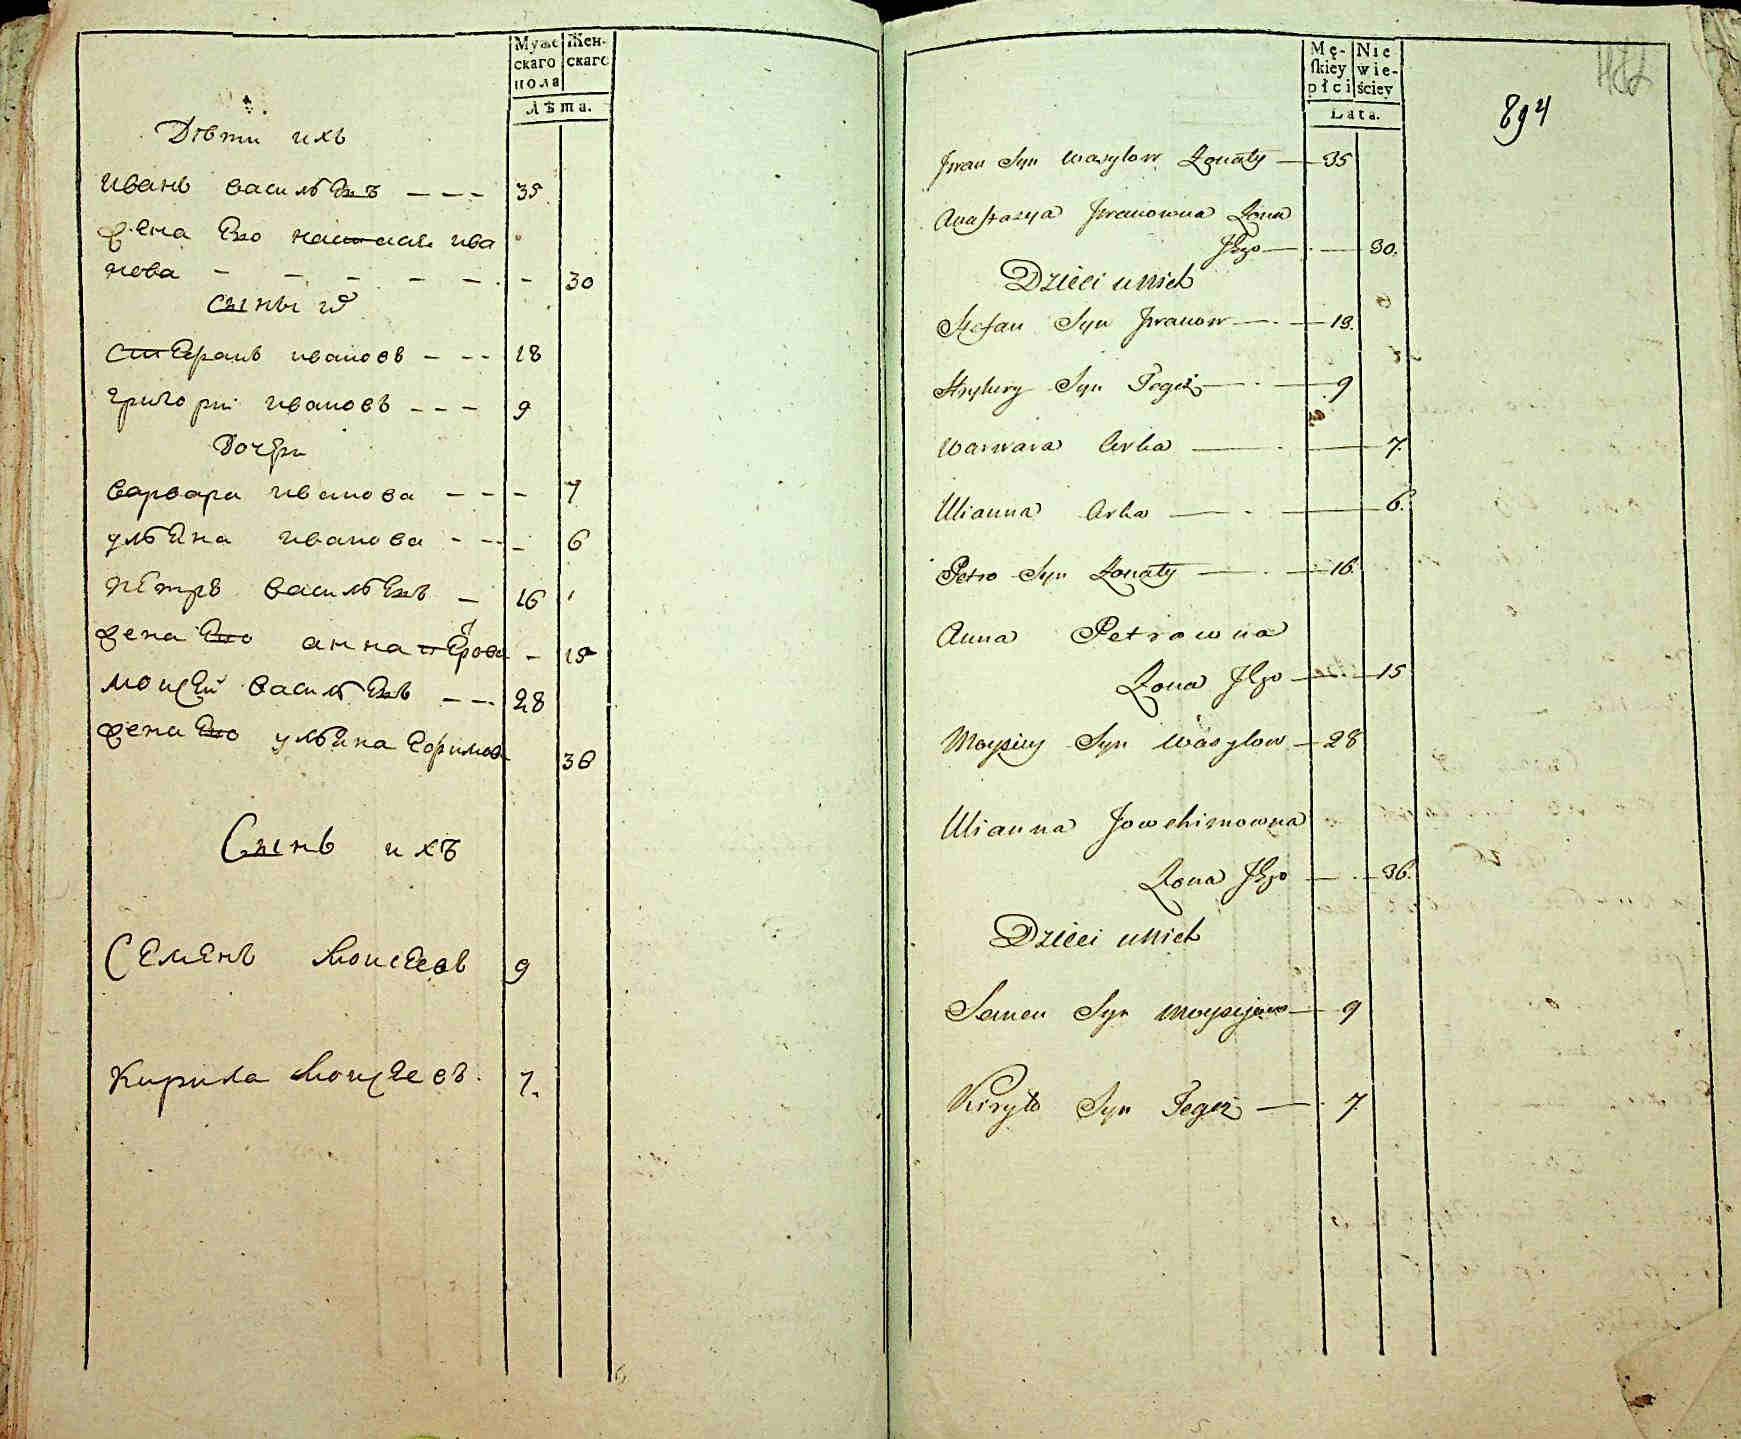 Муже Жен-
скаго скаго
пола
Лѣта.
Дѣти ихъ
иванъ васильевъ - - - 35
жена Его настасия ива
нова - - - - - - 30
сыны их
стефанъ ивановъ - - - 18
григорiи ивановъ - - - 9
дочери
варвара иванова - - - 7
ульЕна иванова - - - 6
пЕтръ васильевъ - 16
жена Его анна пЕтрова - 15
моисЕй васильевъ - - - 28
жена Его ульЕна Ефимова 36
Сынъ ихъ
СЕмЕнъ МоисЕевъ 9
Кирила МоисЕевъ. 7.
Mę- Nie
skiey wie-
płci ściey
Lata.
894
Jwan Syn Wasylow Żonaty — 35
Anastazya Jwanowna Żona
Jego — 30.
Dzieci u Nich
Stefan Syn Jwanow — 18.
Hryhory Syn Tegoż — 9
Warwara Corka — 7.
Ulianna Corka — 6.
Petro Syn Żonaty — 16
Anna Petrowna
Żona Jego — 15
Moysiey Syn Wasylow — 28
Ulianna Jowchimowna
Żona Jego — 36.
Dzieci u Nich
Semen Syn Moysiejow — 9
Kiryło Syn Tegoż — 7